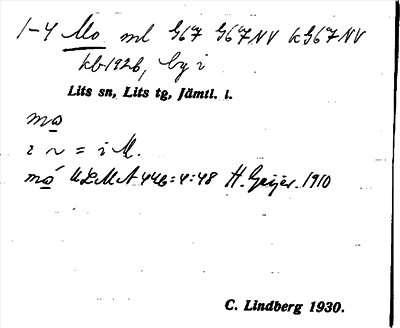 1-4 Mo ml G67 G67NV kG67NV
kb1926, by i
Lits sn, Lits tg, Jämtl. l.
mo
i ~ = i M.
mo´ ULMA 446:4:48 H. Geijer. 1910
C. Lindberg 1930.